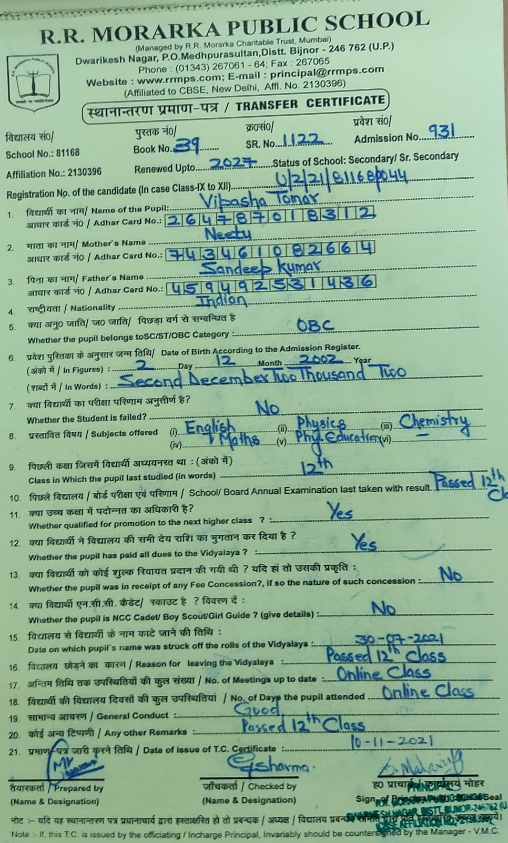 R.R. MORARKA PUBLIC SCHOOL
(Managed by R.R. Morarka Charitable Trust, Mumbai)
Dwarikesh Nagar, P.O.Medhpurasultan,Distt. Bijnor - 246 762 (U.P.)
Phone : (01343) 267061 - 64; Fax : 267065
Website : www.rrmps.com; E-mail : principal@rrmps.com
(Affiliated to CBSE, New Delhi, Affi. No. 2130396)
स्थानान्तरण प्रमाण-पत्र / TRANSFER CERTIFICATE
विद्यालय सं0/ पुस्तक नं0/ क्र0सं0/ प्रवेश सं0/
School No.: 81168 Book No. 39 SR. No. 1122 Admission No. 931
Affiliation No.: 2130396 Renewed Upto 2027 Status of School: Secondary/ Sr. Secondary
Registration No. of the candidate (In case Class-IX to XII)
1. विद्यार्थी का नाम/ Name of the Pupil: Vipasha Tomar
आधार कार्ड नं0 / Adhar Card No.: 264787018312
2. माता का नाम/ Mother's Name Neetu
आधार कार्ड नं0 / Adhar Card No.: 743461082664
3. पिता का नाम/ Father's Name Sandeep Kumar
आधार कार्ड नं0 / Adhar Card No.: 459492531436
4. राष्ट्रीयता / Nationality Indian
5. क्या अनु0 जाति/ ज0 जाति/ पिछड़ा वर्ग से सम्बन्धित है
Whether the pupil belongs toSC/ST/OBC Category: OBC
6. प्रवेश पुस्तिका के अनुसार जन्म तिथि/ Date of Birth According to the Admission Register.
(अंको में / In Figures) : 2 Day 12 Month 2002 Year
(शब्दों में / In Words) : Second December Two Thousand Two
7. क्या विद्यार्थी का परीक्षा परिणाम अनुत्तीर्ण है?
Whether the Student is failed? No
8. प्रस्तावित विषय / Subjects offered (i) English (ii) Physics (iii) Chemistry
(iv) Maths (v) Phy. Education (vi) —
9. पिछली कक्षा जिसमें विद्यार्थी अध्ययनरत था : (अंको में)
Class in Which the pupil last studied (in words) 12th
10. पिछले विद्यालय / बोर्ड परीक्षा एवं परिणाम / School/ Board Annual Examination last taken with result. Passed 12th
11. क्या उच्च कक्षा में पदोन्नत का अधिकारी है?
Whether qualified for promotion to the next higher class ? : Yes
12. क्या विद्यार्थी ने विद्यालय की सभी देय राशि का भुगतान कर दिया है ?
Whether the pupil has paid all dues to the Vidyalaya ? : Yes
13. क्या विद्यार्थी को कोई शुल्क रियायत प्रदान की गयी थी ? यदि हां तो उसकी प्रकृति :
Whether the pupil was in receipt of any Fee Concession?, if so the nature of such concession : No
14. क्या विद्यार्थी एन.सी.सी. कैडेट/ स्काउट है ? विवरण दें :
Whether the pupil is NCC Cadet/ Boy Scout/Girl Guide ? (give details) : No
15. विद्यालय से विद्यार्थी के नाम काटे जाने की तिथि :
Date on which pupil's name was struck off the rolls of the Vidyalaya : 30-07-2021
16. विद्यालय छोड़ने का कारण / Reason for leaving the Vidyalaya Passed 12th Class
17. अन्तिम तिथि तक उपस्थितियों की कुल संख्या / No. of Meetings up to date : Online Class
18. विद्यार्थी की विद्यालय दिवसों की कुल उपस्थितियां / No. of Days the pupil attended Online Class
19. सामान्य आचरण / General Conduct : Good
20. कोई अन्य टिप्पणी / Any other Remarks Passed 12th Class
21. प्रमाण पत्र जारी करने तिथि / Date of issue of T.C. Certificate : 10-11-2021
तैयारकर्ता / Prepared by जाँचकर्ता / Checked by
(Name & Designation) (Name & Designation)
Note :- If this T.C. is issued by the officiating / Incharge Principal, Invariably should be countersigned by the Manager - V.M.C.